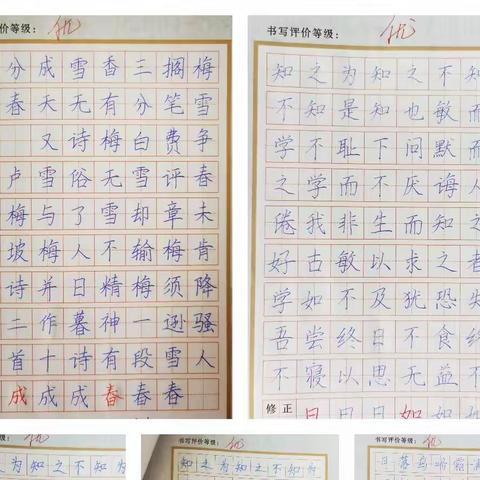 价等级： 优
分成雪香三搁梅
春天无有分笔雪
又诗梅白费争
卢雪俗无雪评春
梅与了雪却章未
坡梅人不输梅肯
诗并日精梅须降
二作暮神一逊骚
首十诗有段雪人
成成成春春春
书写评价等级： 优
知之为知之不知
不知是知也敏而
学不耻下问默而
之学而不厌诲人
倦我非生而知之
好古敏以求之者
学如不及犹恐失
吾尝终日不食终
不寝以思无益不
修正 日日日如如如
价等级： 优
之为知之不知为
书写评价等级： 优
知之为知之不知为
书写评价等级： 优